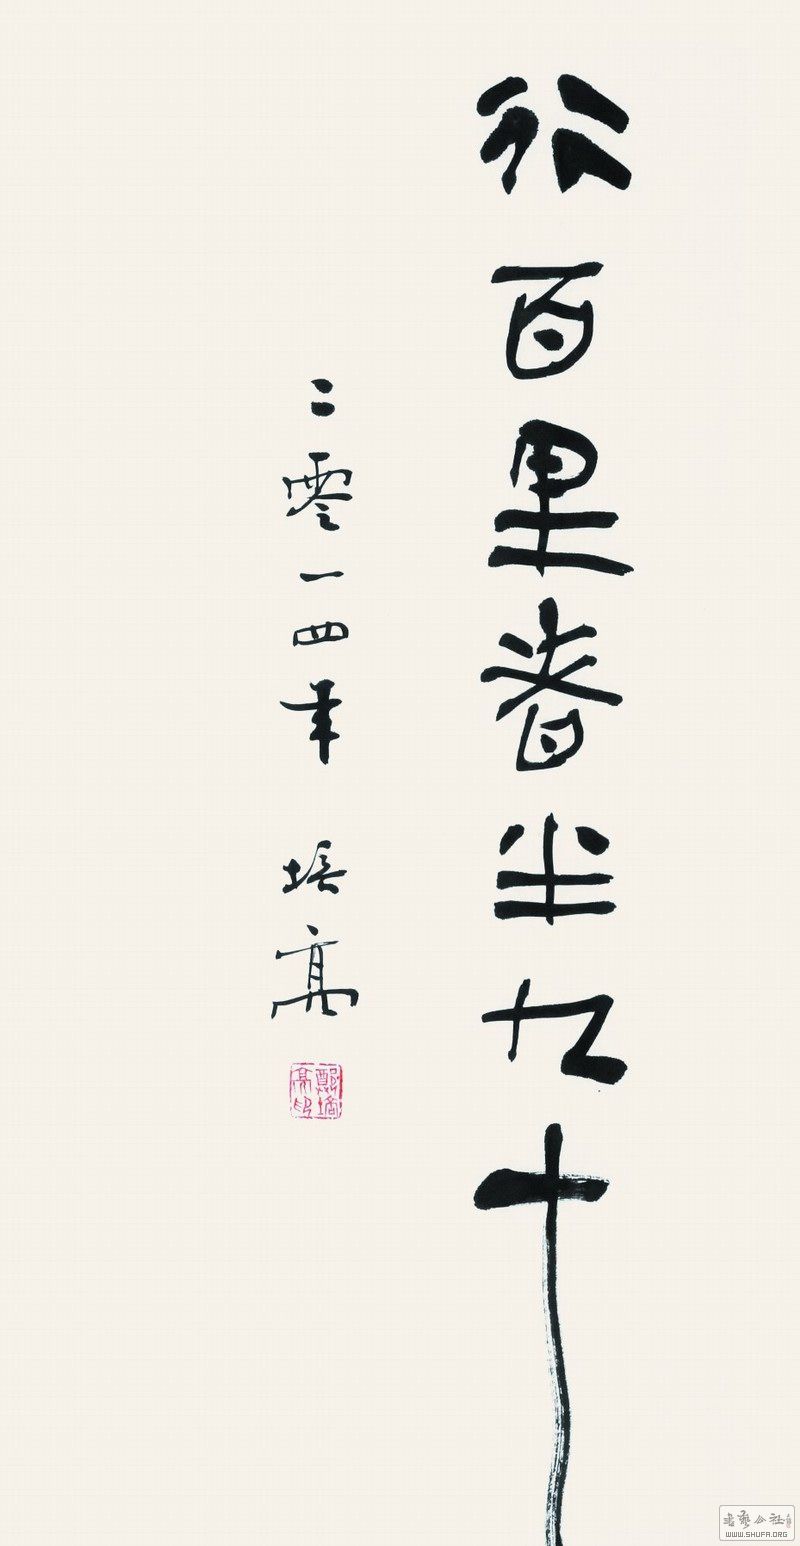 行百里者半九十
二零一四年 培亮
鄭培亮印
书艺公社
WWW.SHUFA.ORG